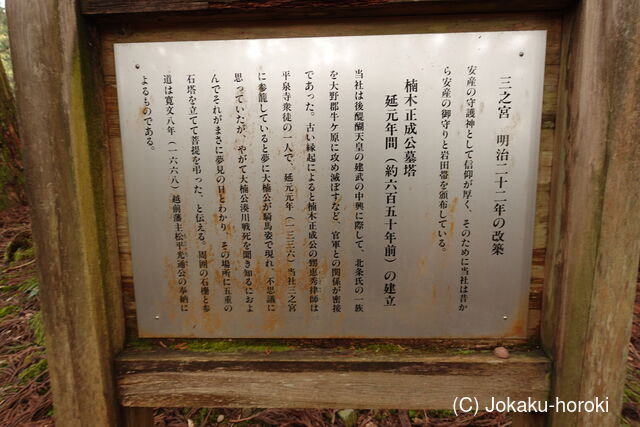 三之宮　明治二十二年の改築
安産の守護神として信仰が厚く、そのために当社は昔か
ら安産の御守りと岩田帯を頒布している。
楠木正成公墓塔
延元年間（約六百五十年前）の建立
当社は後醍醐天皇の建武の中興に際して、北条氏の一族
を大野郡牛ケ原に攻め滅ぼすなど、官軍との関係が密接
であった。古い縁起によると楠木正成公の甥恵秀律師は
平泉寺衆徒の一人で、延元元年（一三三六）当社三之宮
に参籠していると夢に大楠公が騎馬姿で現れ、不思議に
思っていたが、やがて大楠公湊川戦死を聞き知るにおよ
んでそれがまさに夢見の日とわかり、その場所に五重の
石塔を立てて菩提を弔った、と伝える。周囲の石柵と参
道は寛文八年（一六六八）越前藩主松平光通公の奉納に
よるものである。
(C) Jokaku-horoki